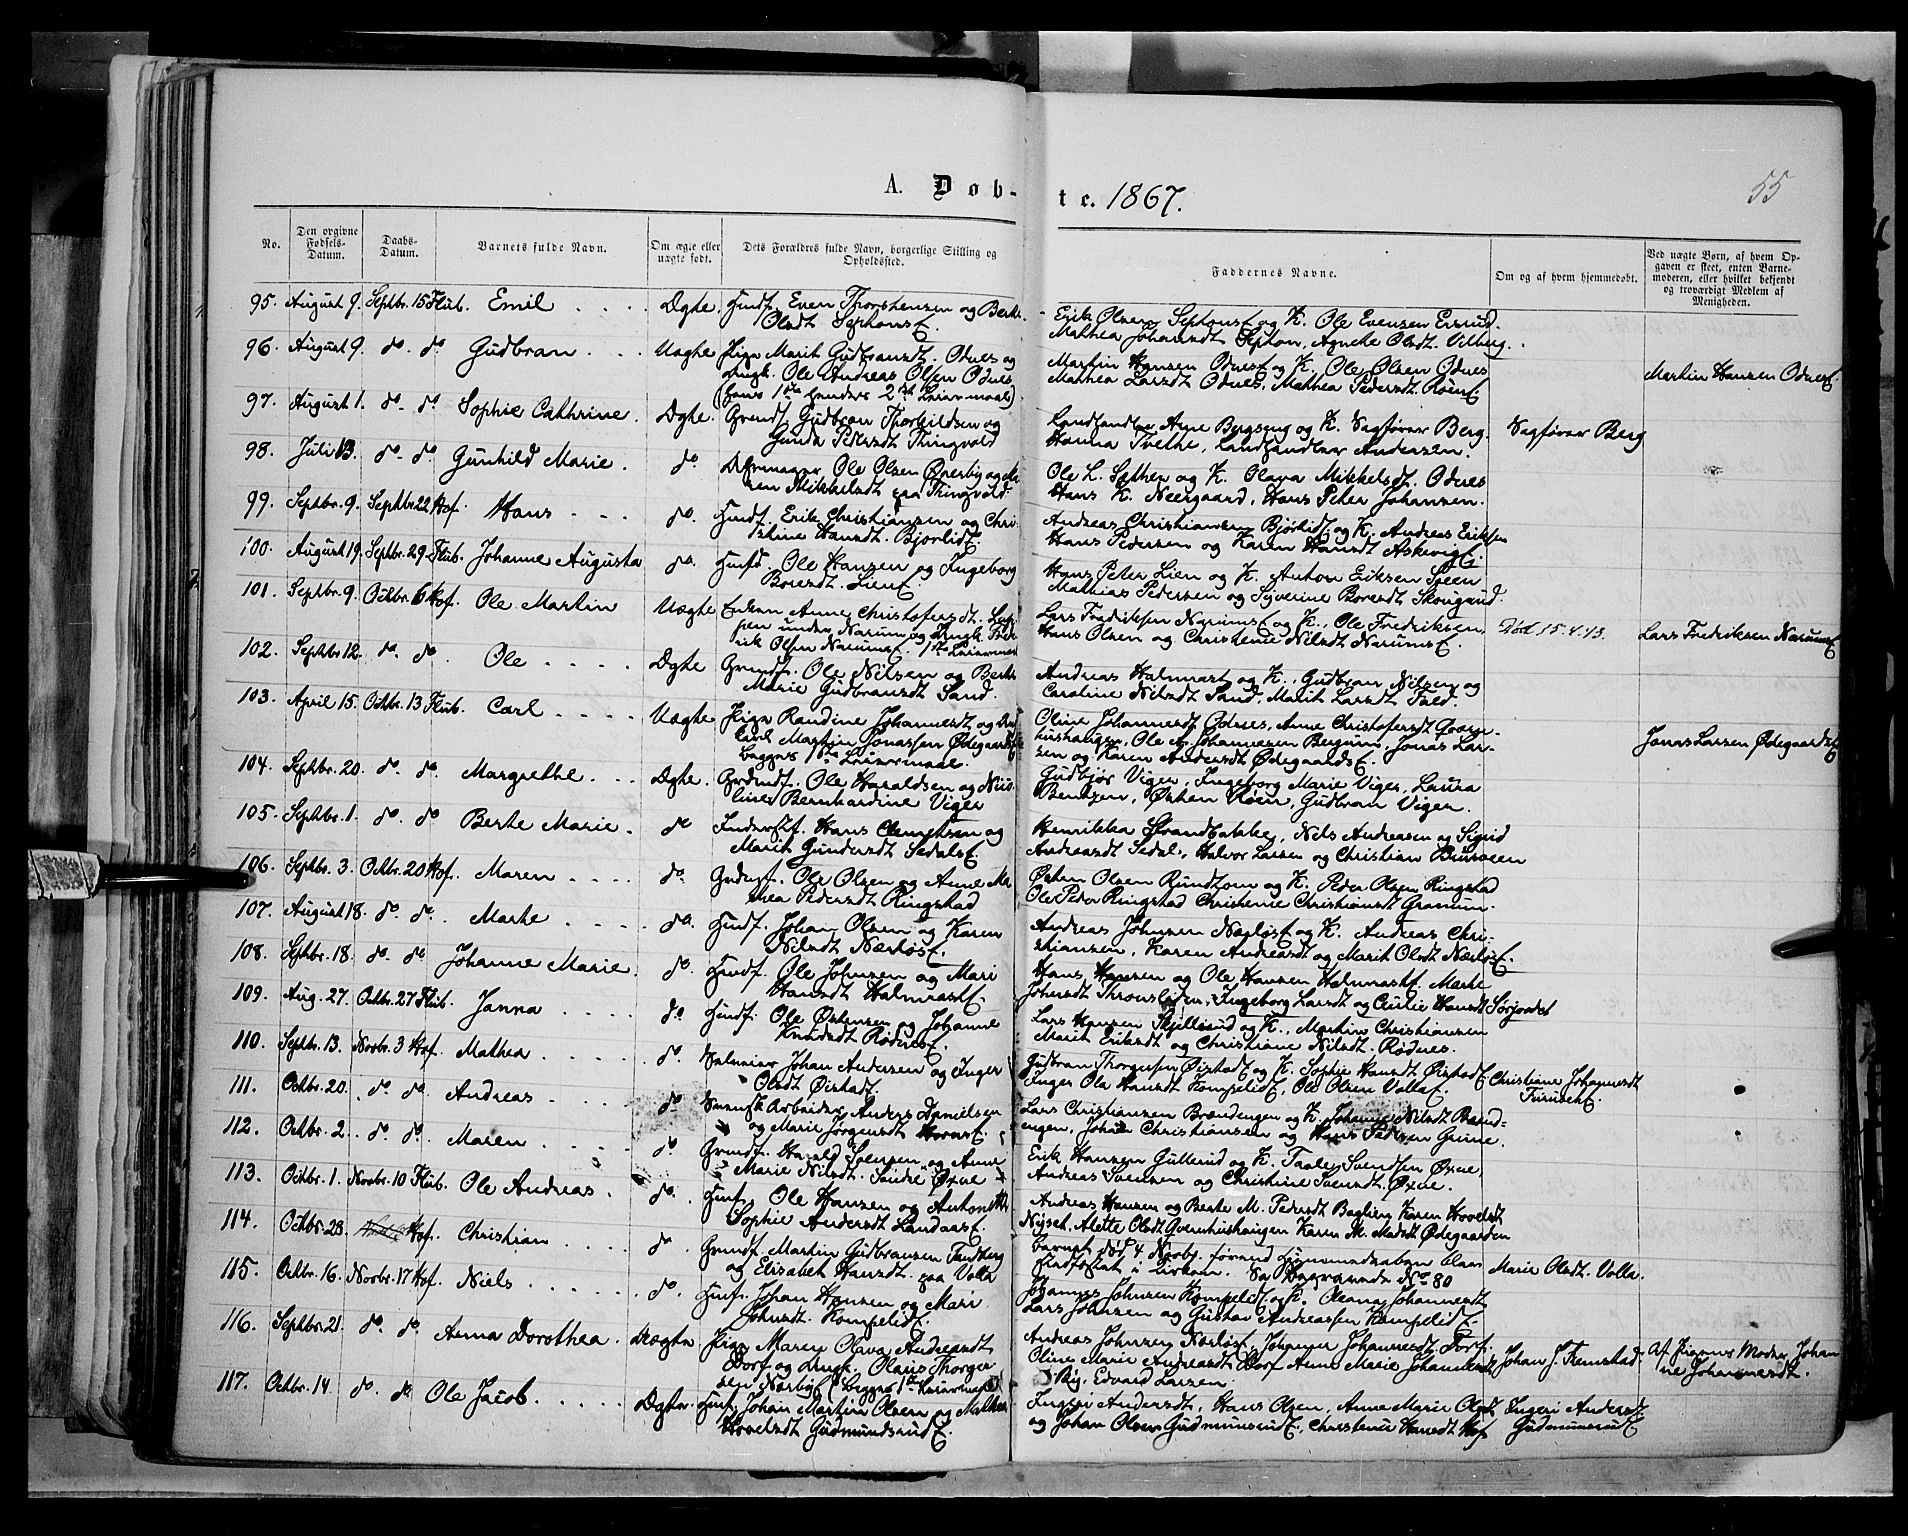 A. Døb-
te. 1867.
55
No.
Den opgivne Fødsels-Datum.
Daabs-Datum.
Barnets fulde Navn.
Om ægte eller uægte født.
Dets Forældres fulde Navn, borgerlige Stilling og Opholdssted.
Faddernes Navne.
Om og af hvem hjemmedøbt.
Ved uægte Børn, af hvem Opgaven er skeet, enten Barnemoderen, eller hvilket bekjendt og troværdigt Medlem af Menigheden.
95. August 9. Septbr. 15 Flub. Emil Ægte Husmf. Even Thorstensen og Berthe
Olsdt
Erik Olsen og K. Ole Evensen
Mathea Johansdt Agnethe Olsdt.
96. August 9. do. do Gudbran Uægte Pige Marit Gudbransdt. Odnes og
Ungk. Ole Andreas Olsen Odnes
(hans 1ste hendes 2det Leiermaal)
Martin Hansen Odnes og K. Ole Olsen Odnes
Mathea Larsdt Odnes, Mathea Pedersdt. Røen
Martin Hansen Odnes
97. August 1. do. do Sophie Cathrine. Ægte. Grmdf. Gudbran Thorkildsen og
Gunda Pedersdt Thingvold
Landhandler Arne Bergseng og K. Sagfører Berg.
Hanna Tvethe, Landhandler Andersen.
Sagfører Berg
98. Juli 13. do. do. Gunhild Marie. do. Ole Olsen
Mikkelsdt paa Thingvold.
Ole L. Sæther og K. Olava Mikkelsdt. Odnes
Hans K. Neergaard, Hans Peter Johansen.
99. Septbr. 9. Septbr 22 Hof. Hans do. Husmf. Erik Christiansen og Chri-
stine Hansdt. Bjørlid
Andreas Christiansen Bjørlid og K. Andreas Eriksen
Hans Pedersen og Karen Hansdt Askevig
100. August 19. Septbr. 29. Flub. Johanne Augusta do. Ole Hansen og Ingeborg
Boresdt. Lien
Hans Peter Lien og K. Anton Eriksen
Mathias Pedersen og Syverine Boresdt Skougsrud.
101. Septbr. 9. Octbr. 6 Hof. Ole Martin Uægte Enken Anne Christofersdt.
under Narum og Ungk. Fred-
rik Olsen Narum. 1ste Leiermaal
Lars Fredriksen Narum og K., Ole Fredriksen,
Hans Olsen og Christense Nilsdt Narum.
Død. 15.4.43.
Lars Fredriksen Narum
102. Septbr 12. do. do. Ole Ægte Grmdf. Ole Nilsen og Berthe
Marie Gudbransdt Sand.
Andreas Halmrast og K., Gudbran Nilsen og
Caroline Nilsdt Sand, Marit Larsdt
103. April 15. Octbr. 13 Flub. Carl Uægte Pige Randine Johannesdt. og
Martin Jonassen Ødegaards
begges 1ste Leiermaal.
Oline Johannesdt Odnes, Anne Christofersdt
Ole A. Johannesen Bergum, Jonas Lar-
sen og Karen Andersdt Ødegaards
Jonas Larsen Ødegaards
104. Septbr. 20. do. do. Margrethe. Ægte. Ole Haraldsen og
Bernhardine Viger
Gudbjør Viger, Ingeborg Marie Viger, Laura
Bentzen, Østen Røen, Gudbran Viger.
105. Septbr. 1. do. do Berte Marie. do Hans Clemetsen og
Marit Gundersdt Sedals
Henrikka Strandbakke, Nils Andreasen og Sigrid
Andreasdt Sedal., Halvor Larsen og Christian
106. Septbr. 3. Octbr. 20 Hof. Maren do. Ole Olsen og Anne Ma-
thea Pedersdt Ringstad
Østen Olsen og K. Peder Olsen Ringstad
Ole Peder Ringstad Christense Christiansdt Granum.
107. August 18. do. do. Marte do. Husmf. Johan Olsen og Karen
Nilsdt
Andreas Johnsen og K. Andreas Chri-
stiansen, Karen Andreasdt og Marit Olsdt
108. Septbr. 18. do. do. Johanne Marie. do. Husmf. Ole Johnsen og Mari
Hansdt Halmrast
Hans Hansen og Ole Hansen Halmrast. Marthe
Johnsdt Ingeborg Larsdt og Cicilie Hansdt
109. Aug. 27. Octbr. 27 Flub. Janna do. Husmf. Ole Østensen og Johanne
Knudsdt Rødnes
Lars Hansen Skjellerud og K., Martin Christiansen
Marit Eriksdt og Christiane Nilsdt. Rødnes.
110. Septbr. 13. Novbr. 3 Hof. Mathea do. Johan Andersen og Inger
Olsdt Øistad
Gudbran Thorgersen Øistad og K. Sophie Hansdt Øistad
Inger Ole Hansdt. Kompelid, Ole Olsen Volla
Christiane Johannesdt
111. Octbr. 20. do. do. Andreas do. Svensk Arbeider Anders Danielsen
og Marie Jørgensdt
Lars Christiansen Brændengen og K., Johanne Nilsdt Brænd-
engen, Johan Christiansen og Hans Pedersen
112. Octbr. 2. do. do. Maren do Grmdf. Harald Svensen og Anne
Marie Nilsdt. Søndre Øxne
Erik Hansen Gullerud og K. Taale Svendsen Øxne,
Andreas Svensen og Christine Svensdt. Øxne.
113. Octbr. 1. Novbr. 10 Flub. Ole Andreas. do. Husmf. Ole Hansen og Antonette
Sophie Andersdt Landaas
Andreas Hansen og Berte M. Pedersdt Karen Hovelsdt
Alette Olsdt Qvernhushaugen Karen M. Madsdt Ødegaarden
114. Octbr. 28. Hof. Christian do. Grmdf. Martin Gudbransen
og Elisabet Hansdt. paa Volla
barnet død 4 Novbr. førend
i Kirken. No 80
Marie Olsdt. Volla.
115. Octbr. 16. Novbr. 17 Hof. Niels do. Husmf. Johan Hansen og Mari
Johnsdt. Kompelid.
Johannes Johnsen Kompelid og K. Oleana Johannesdt
Lars Johnsen og Gustav Andreassen Kompelid.
116. Septbr. 21. do. do. Anna Dorothea. Uægte Pige Maren Olava Andreasdt
Dorf og Ungk. Olaus Thorger-
sen Nørby (begges 1ste Leiermaal)
Andreas Johnsen Johannes Johannesdt. Dorf.
Oline Marie Andreasdt Dorf Anne Marie Johannesdt
Edvard Larsen.
Johan J. Fremstad
Af Pigens Moder Johan-
ne Johannesdt.
117. Octbr. 14 do. do. Ole Jacob. Ægte Husmf. Johan Martin Olsen og Mathea
Hovelsdt Gudmundsrud
Ingeri Andersdt, Hans Olsen, Anne Marie Olsdt
og Johan Olsen Gudmunsrud, Christense Hansdt Hof
Ingeri Andersdt
Gudmunsrud